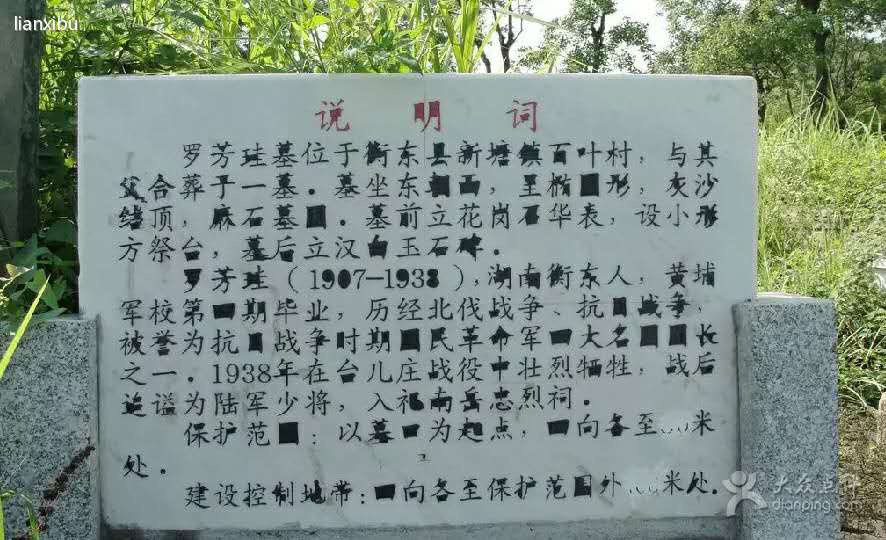 lianxibu
说明词
罗芳珪墓位于衡东县新塘镇百叶村，与其
父合葬于一墓。墓坐东朝西，呈椭圆形，灰沙
结顶，麻石墓围。墓前立花岗石华表，设小形
方祭台，墓后立汉白玉石碑。
罗芳珪（1907—1938），湖南衡东人，黄埔
军校第四期毕业，历经北伐战争、抗日战争，
被誉为抗日战争时期国民革命军四大名团团长
之一。1938年在台儿庄战役中壮烈牺牲，战后
追谥为陆军少将，入祀南岳忠烈祠。
保护范围：以墓口为起点，四向各至米
处。
建设控制地带：四向各至保护范围外米处。
大众点评
dianping.com